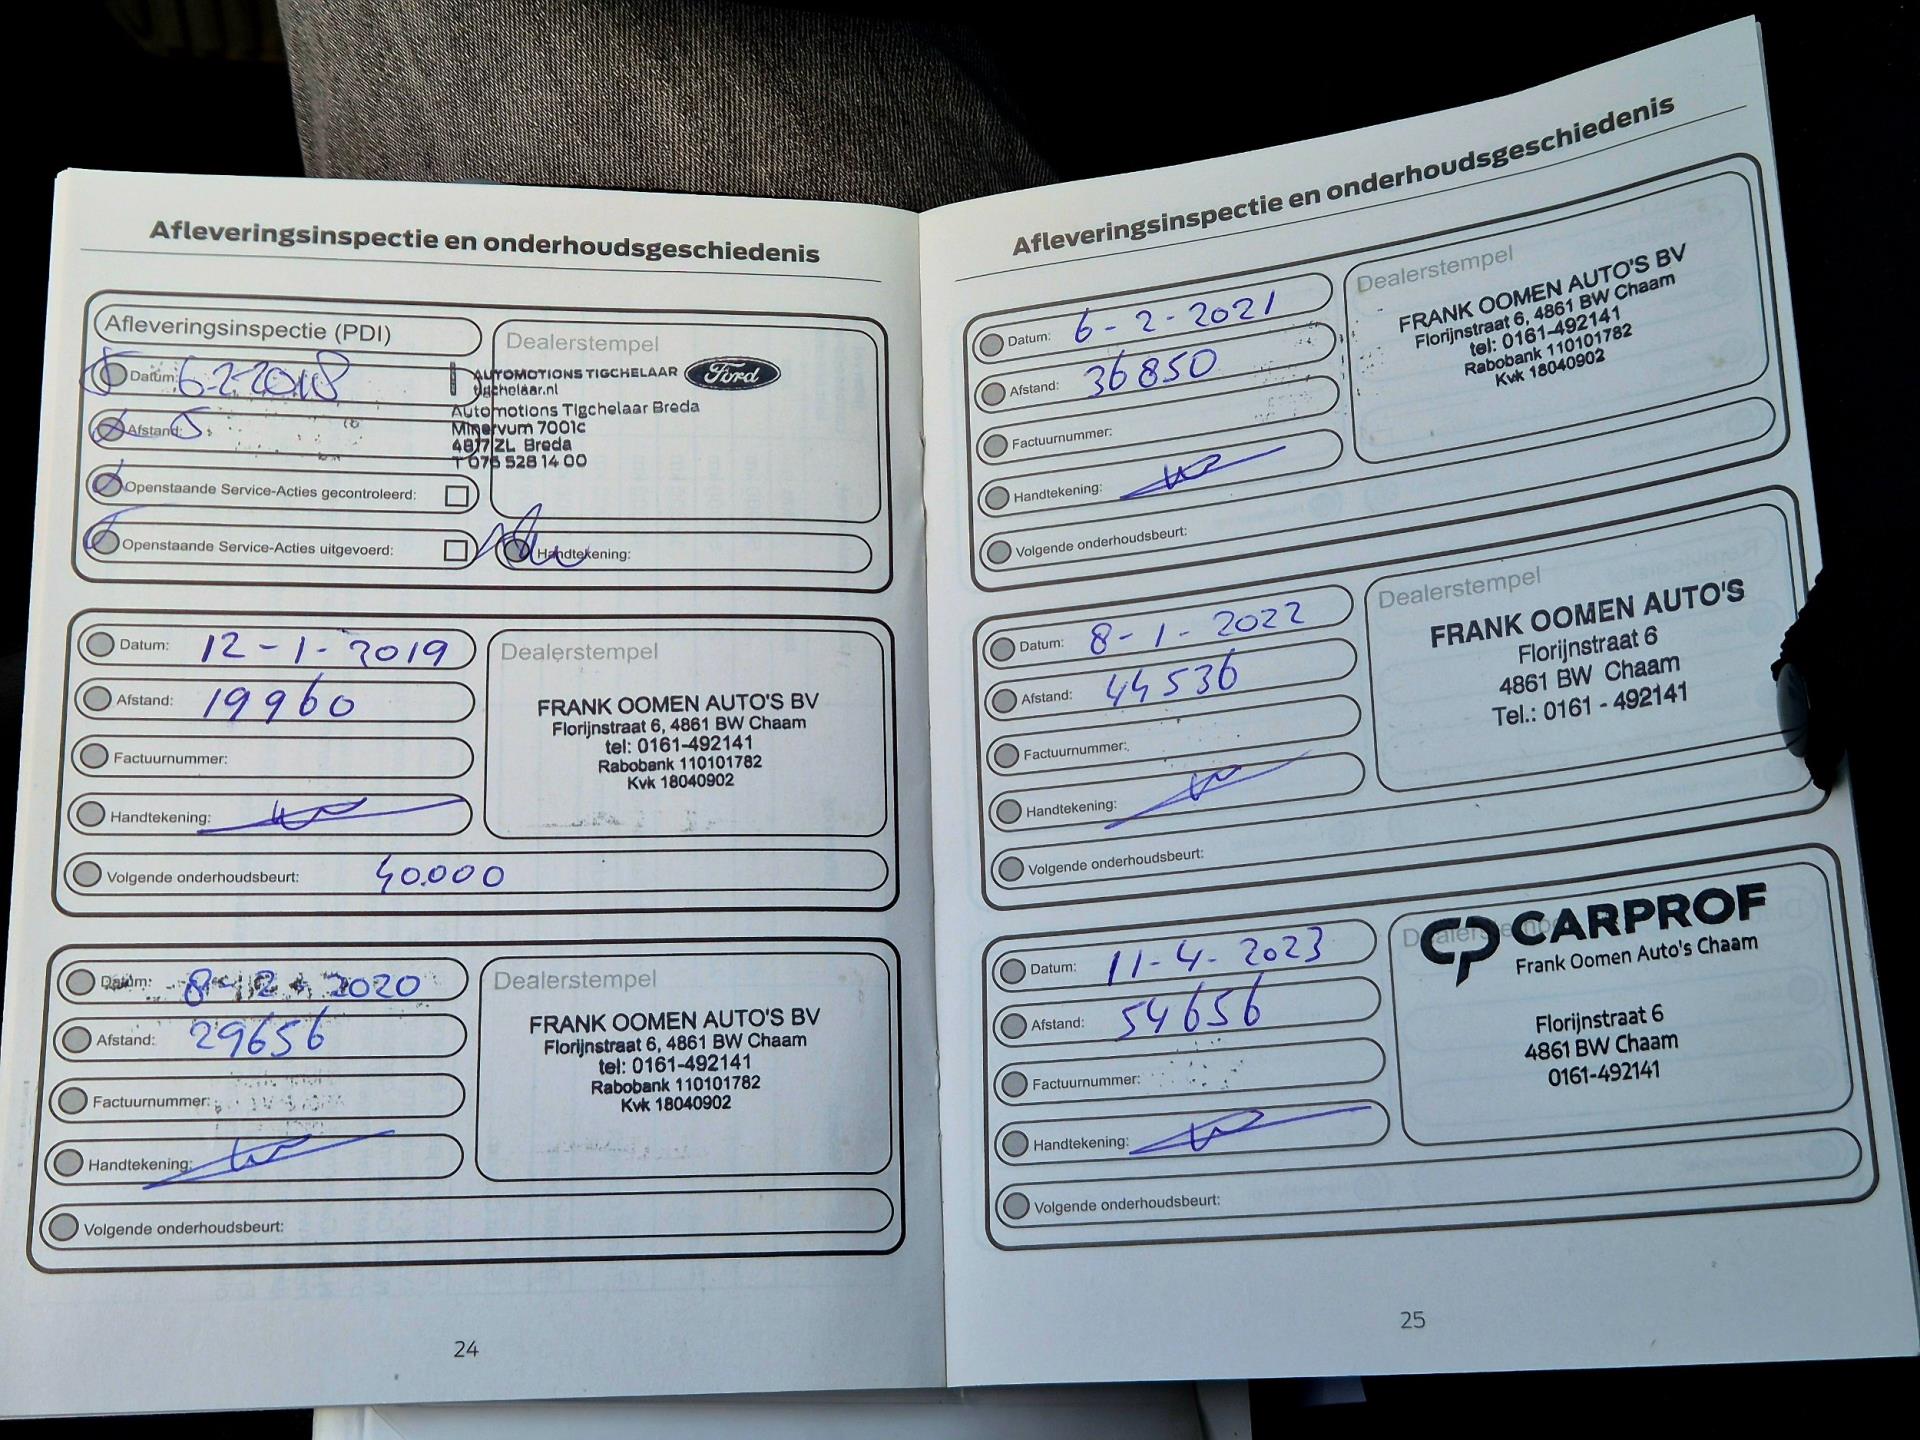 Afleveringsinspectie en onderhoudsgeschiedenis
Afleveringsinspectie (PDI)
Datum: 6-2-2018
Afstand: 5
Openstaande Service-Acties gecontroleerd:
Openstaande Service-Acties uitgevoerd:
Dealerstempel
AUTOMOTIONS TIGCHELAAR Ford
tigchelaar.nl
Automotions Tigchelaar Breda
Minervum 7001c
4817 ZL Breda
T 076 528 14 00
Handtekening:
Datum: 12-1-2019
Afstand: 19960
Factuurnummer:
Handtekening:
Dealerstempel
FRANK OOMEN AUTO'S BV
Florijnstraat 6, 4861 BW Chaam
tel: 0161-492141
Rabobank 110101782
Kvk 18040902
Volgende onderhoudsbeurt: 40.000
Datum: 8-2-2020
Afstand: 29656
Factuurnummer:
Handtekening:
Dealerstempel
FRANK OOMEN AUTO'S BV
Florijnstraat 6, 4861 BW Chaam
tel: 0161-492141
Rabobank 110101782
Kvk 18040902
Volgende onderhoudsbeurt:
24
Afleveringsinspectie en onderhoudsgeschiedenis
Datum: 6-2-2021
Afstand: 36850
Factuurnummer:
Handtekening:
Dealerstempel
FRANK OOMEN AUTO'S BV
Florijnstraat 6, 4861 BW Chaam
tel: 0161-492141
Rabobank 110101782
Kvk 18040902
Volgende onderhoudsbeurt:
Datum: 8-1-2022
Afstand: 44536
Factuurnummer:
Handtekening:
Dealerstempel
FRANK OOMEN AUTO'S
Florijnstraat 6
4861 BW Chaam
Tel.: 0161 - 492141
Volgende onderhoudsbeurt:
Datum: 11-4-2023
Afstand: 54656
Factuurnummer:
Handtekening:
Dealerstempel
CP CARPROF
Frank Oomen Auto's Chaam
Florijnstraat 6
4861 BW Chaam
0161-492141
Volgende onderhoudsbeurt:
25